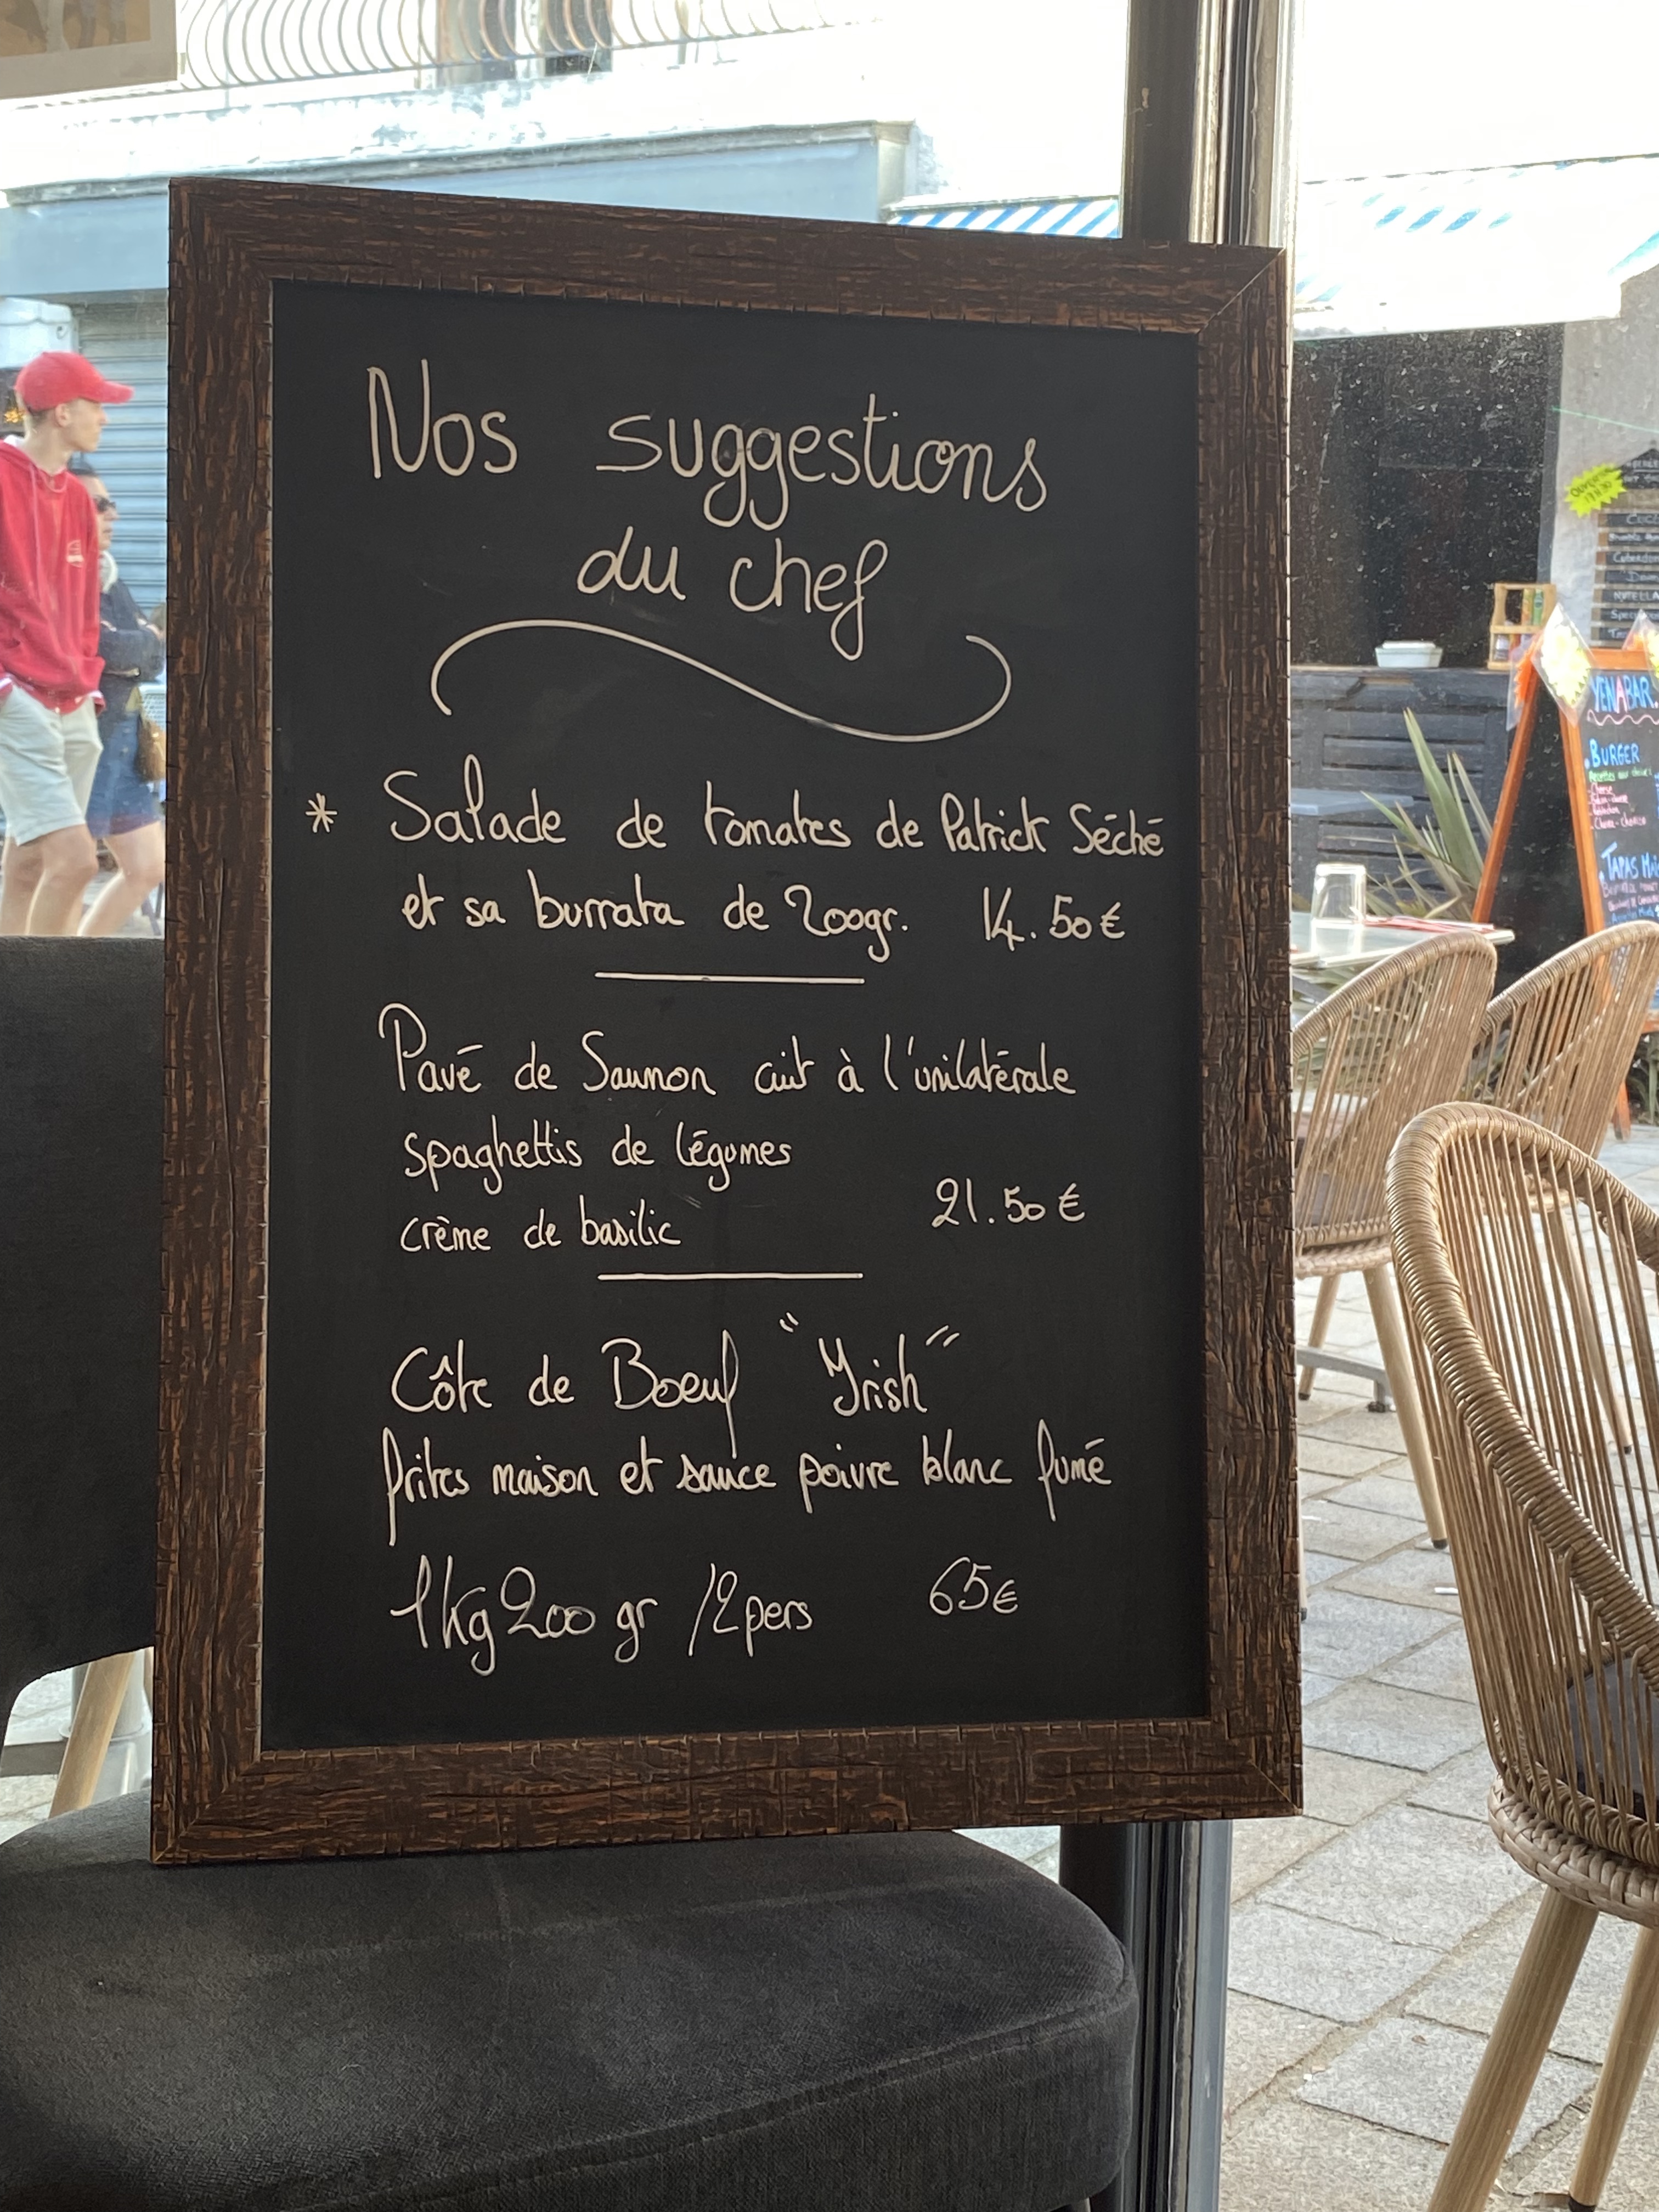 Nos suggestions
du chef
* Salade de tomates de Patrick Séché
et sa burrata de 200gr. 14.50€
Pavé de Saumon cuit à l'unilatérale
spaghettis de légumes
crème de basilic 21.50€
Côte de Boeuf "Yrish"
frites maison et sauce poivre blanc fumé
1kg200 gr /2pers 65€
NUTELLA
YENABAR
BURGER
TAPAS